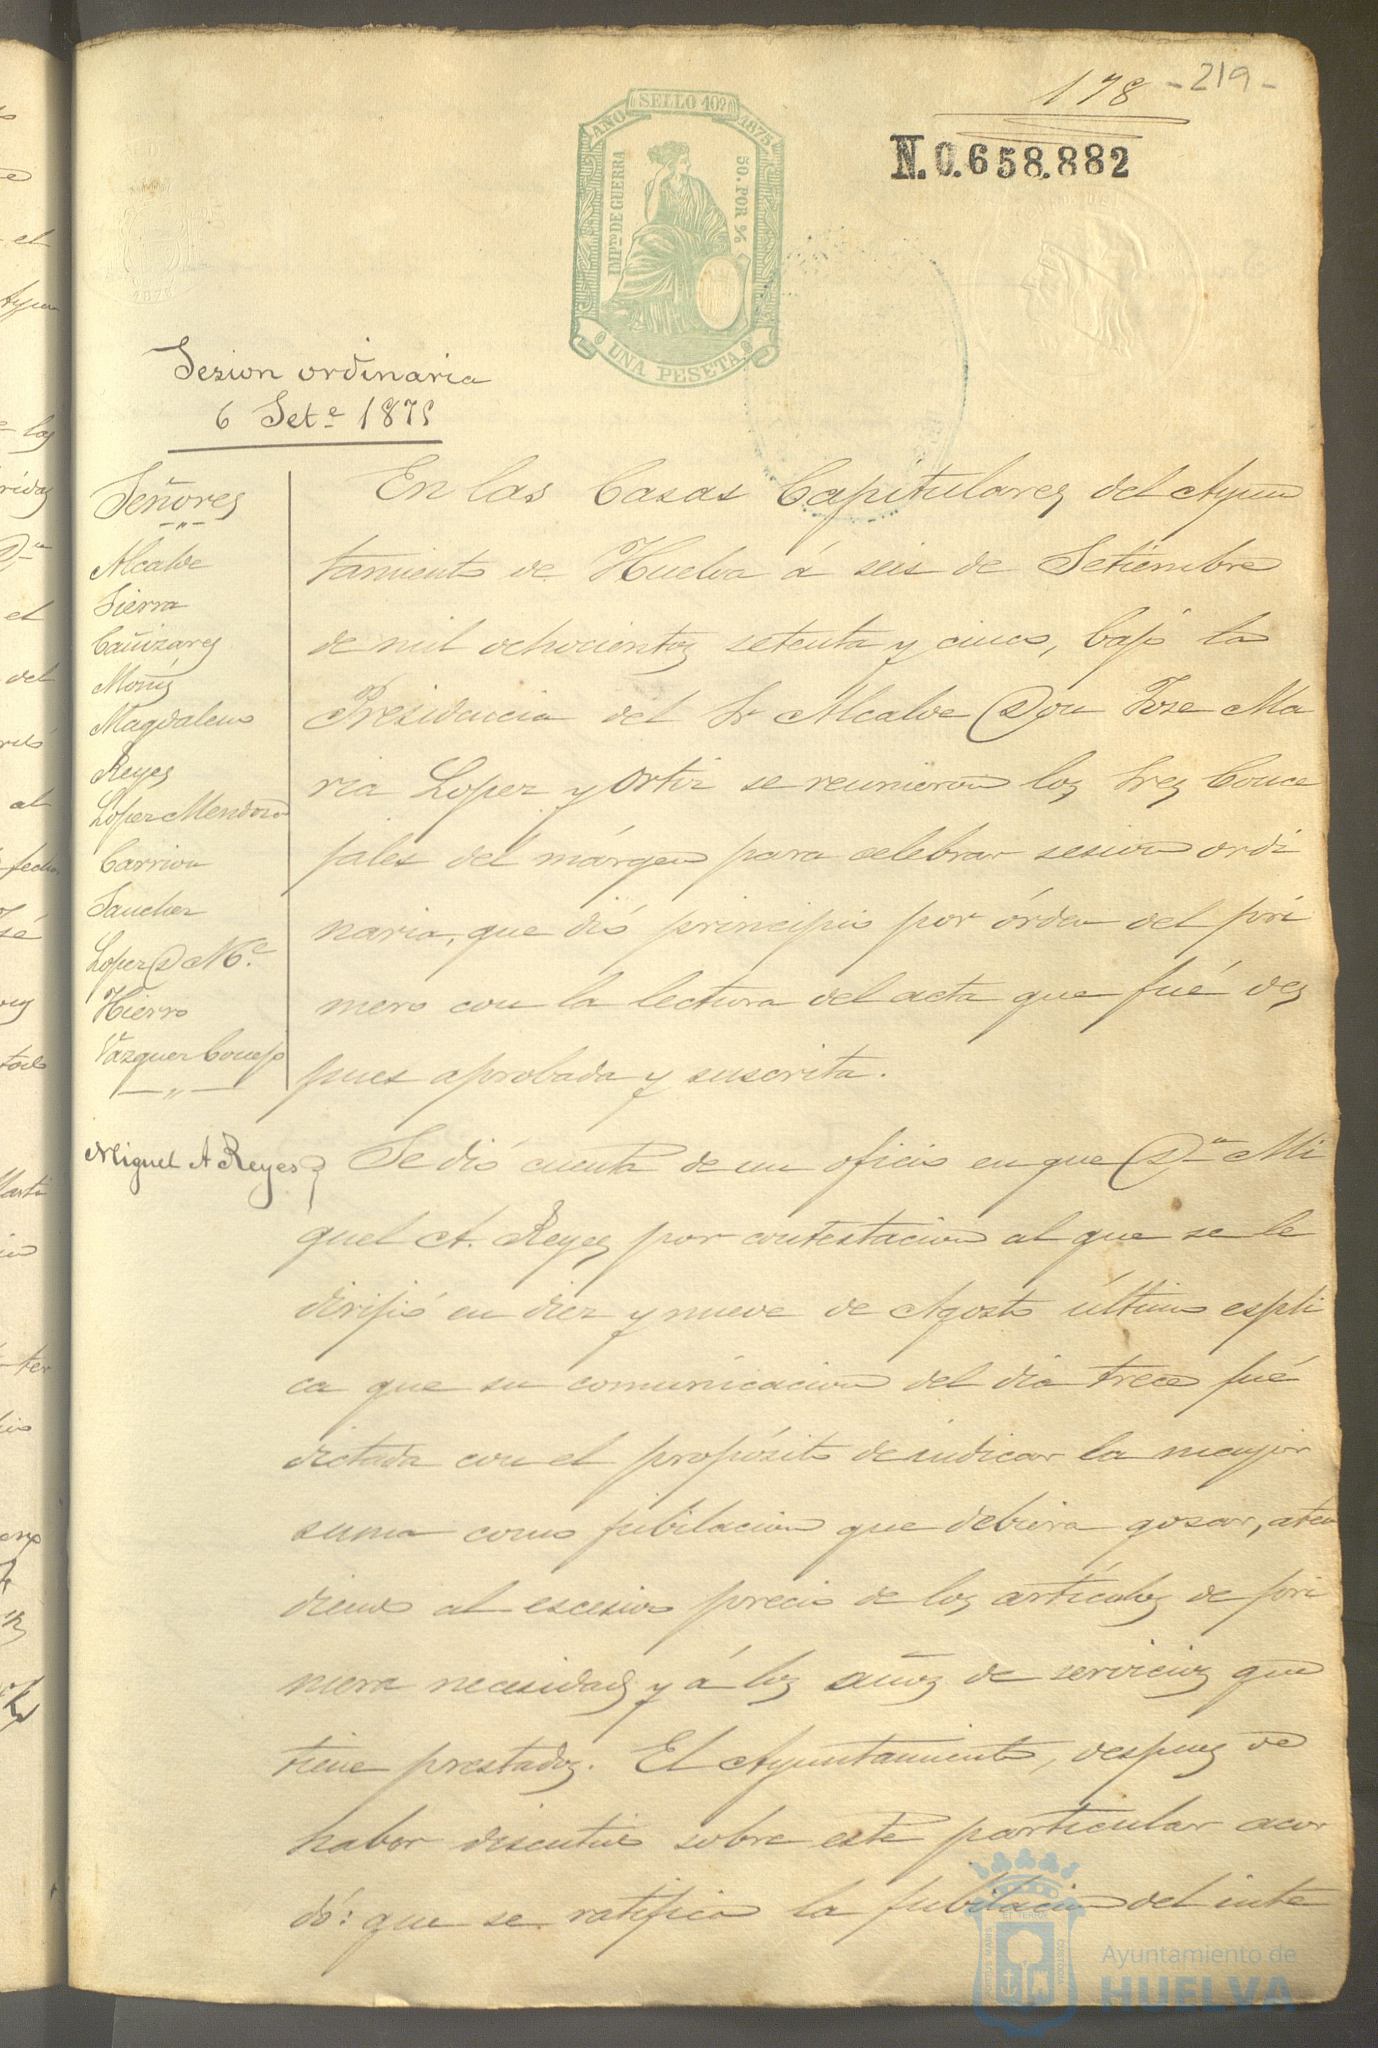 178 - 219 -
N. 0.658.882
SELLO 10º
AÑO 1875
IMPto DE GUERRA
50. POR %
UNA PESETA
Sesion ordinaria
6 Sete 1875
Señores
Alcalde
Sierra
Cañizares
Moñis
Magdaleno
Reyes
Lopez Mendoza
Carrion
Sanchez
Lopez D. Me
Hierro
Vazquez Conejo
En las Casas Capitulares del Ayun
tamiento de Huelva á seis de Setiembre
de mil ochocientos setenta y cinco, bajo la
Presidencia del Sr Alcalde Don Jose Ma
ria Lopez y Ortiz se reunieron los Sres Conce
jales del márgen para celebrar sesion ordi
naria, que dió principio por órden del pri
mero con la lectura del acta que fué des
pues aprobada y suscrita.
Miguel A Reyes
Se dió cuenta de un oficio en que Dn Mi
guel A. Reyes por contestacion al que se le
dirijió en diez y nueve de Agosto último espli
ca que su comunicacion del dia trece fué
dictada con el propósito de indicar la mayor
suma como jubilacion que debiera gosar, aten
diendo al escesivo precio de los artículos de pri
mera necesidad y á los años de servicios que
tiene prestados. El Ayuntamiento, despues de
haber discutido sobre este particular acor
dó: que se ratifica la jubilacion del inte
Ayuntamiento de
HUELVA